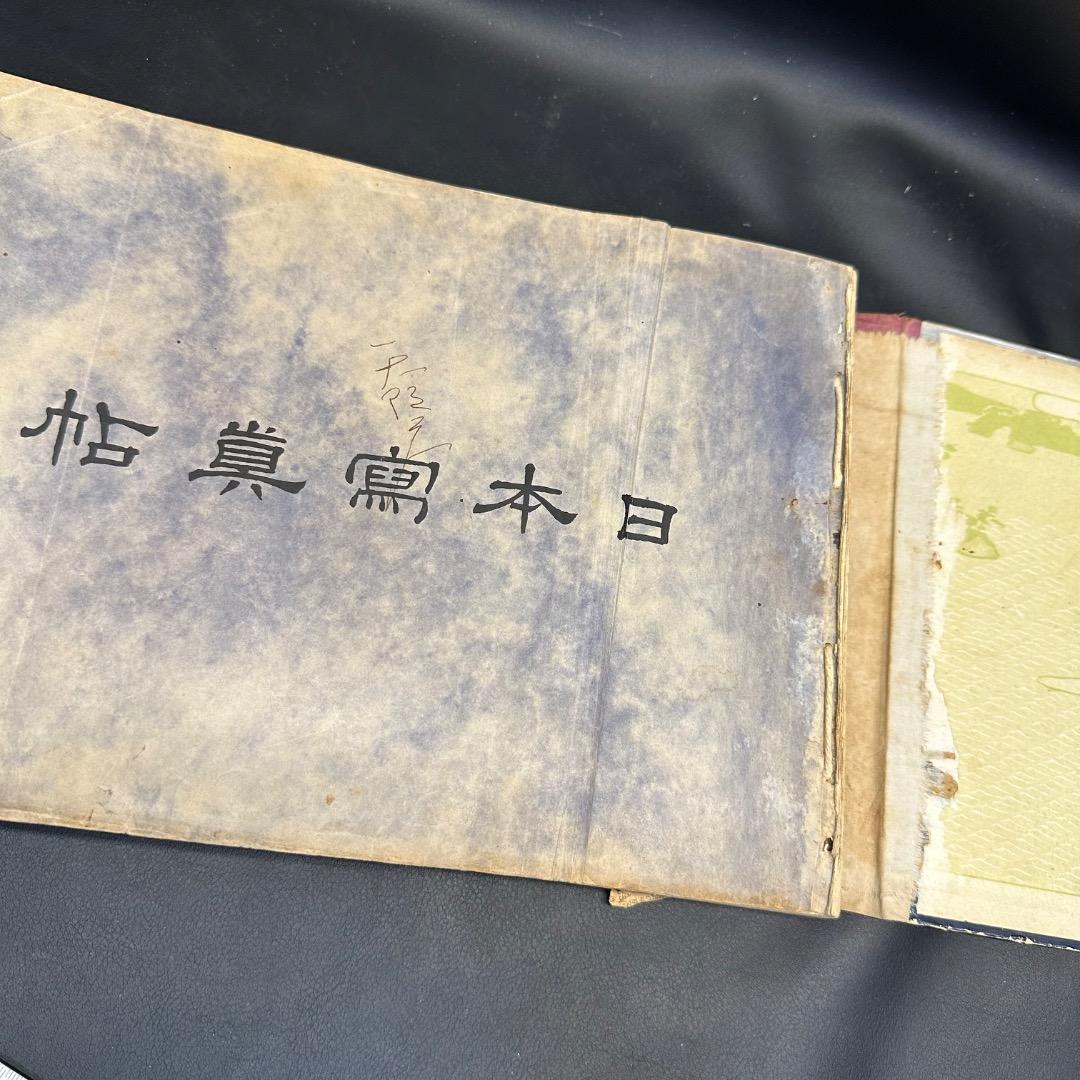 日本寫眞帖